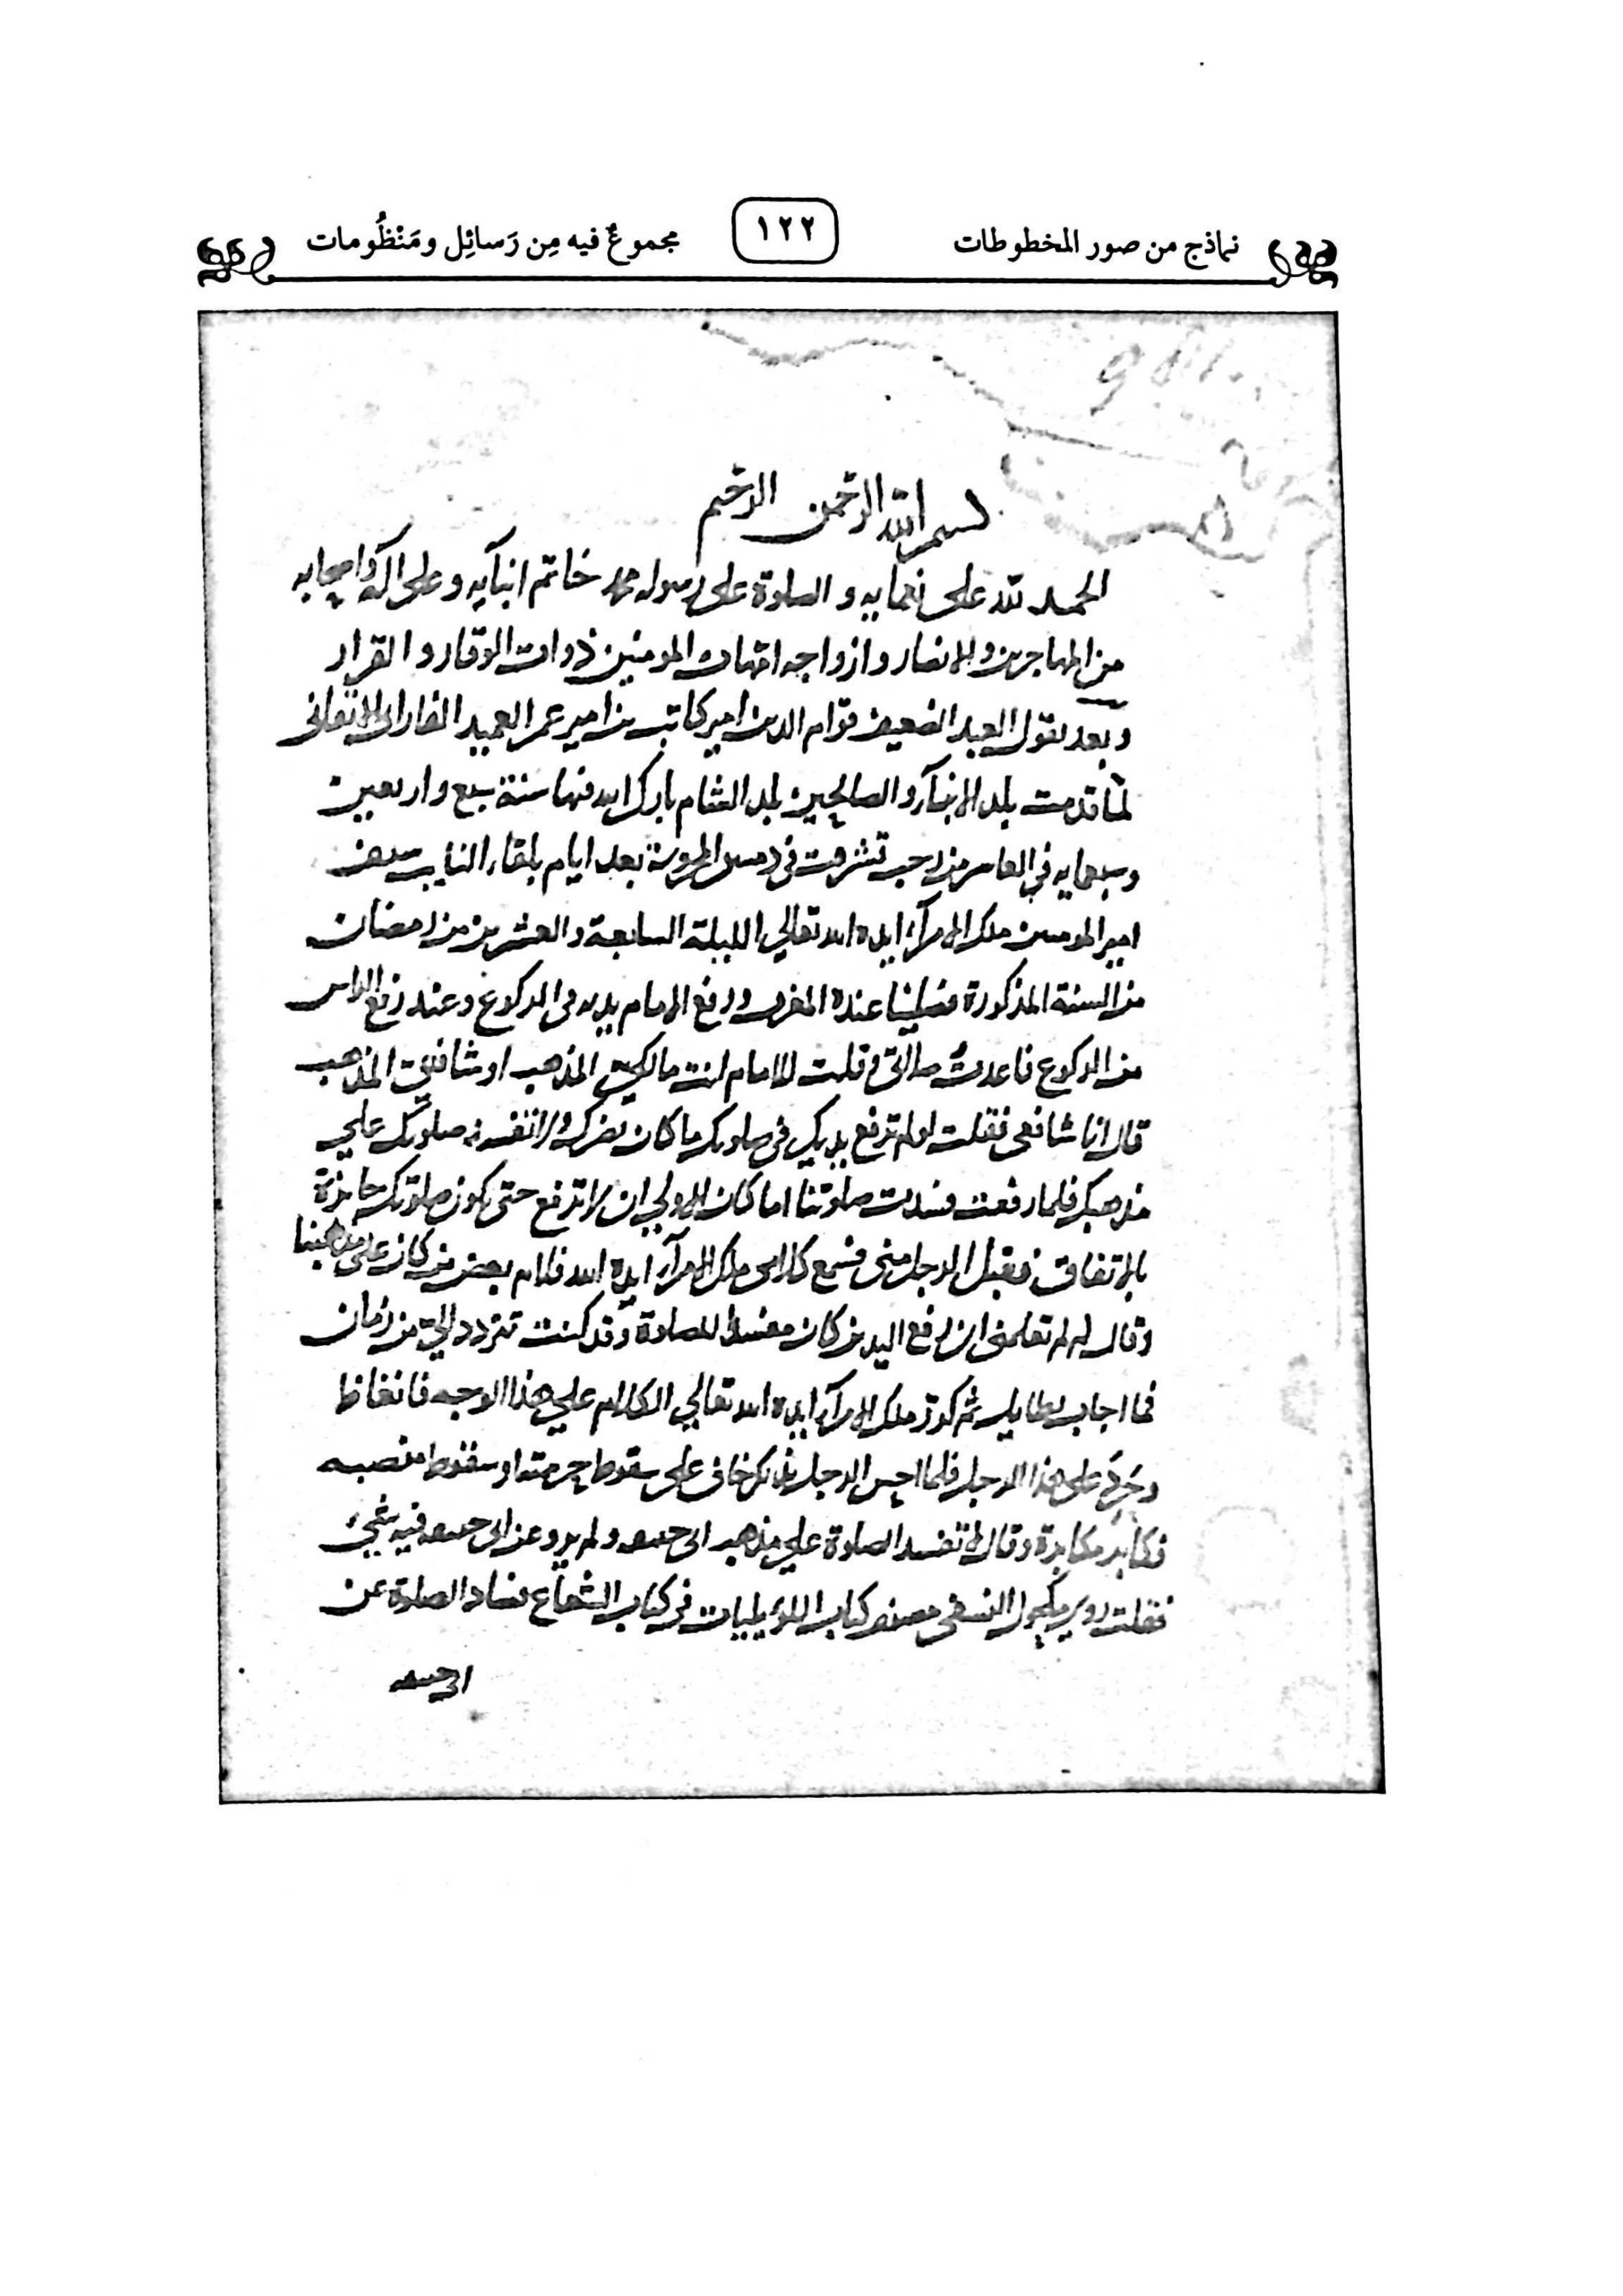 نماذج من صور المخطوطات
١٢٢
مجموعٌ فيه مِن رَسائِل ومَنْظُومات
بسم الله الرحمن الرحيم
الحمد لله على نعمايه والصلوة على رسوله محمد خاتم انبيآيه وعلى اله واصحابه
من المهاجرين والانصار وازواجه امهات المومنين ذوات الوقار والقرار
وبعد يقول العبد الضعيف قوام الدين امير كاتب بن امير عمر العميد الفارابى الاتقانى
لما قدمت بلد الانبيآء والصالحين بلد الشام بارك الله فيها سنة سبع واربعين
وسبعمايه في العاشر من رجب تشرفت فى دمشق المحروسة بعد ايام بلقاء النايب سيف
امير المومنين ملك الامرآء ايده الله تعالي الليلة السابعة والعشرين من رمضان
من السنة المذكورة فصلينا عنده المغرب ورفع الامام يديه فى الركوع وعند رفع الراس
من الركوع فاعدتُ صلاتى وقلت للامام انت مالكي المذهب او شافعي المذهب
قال انا شافعى فقلت لو لم ترفع يديك فى صلوتك ما كان يضرك ولا تفسد صلوتك علي
مذهبك فلما رفعت فسدت صلوتنا اما كان الاولي ان لا ترفع حتى يكون صلوتك جايزة
بالاتفاق فقبل الرجل منى فسمع كلامى ملك الامرآء ايده الله فلام بعض من كان على مذهبنا
وقال له لم لم تعلمنى ان رفع اليدين كان مفسدا للصلاة وقد كنت تتردد الي من زمان
فما اجاب بطايل ثم كرر ملك الامرآء ايده الله تعالي الكلام علي هذا الوجه فانغاظ
وحَرِدَ على هذا الرجل فلما احس الرجل بذلك خاف على سقوط حرمته او سقوط منصبه
فكابر مكابرة وقال لا تفسد الصلوة علي مذهب ابى حنيفه ولم يرو عن ابى حنيفه فيه شيء
فقلت روى مكحول النسفى مصنف كتاب اللؤليات فى كتاب الشعاع فساد الصلوة عن
ابى حنيفه